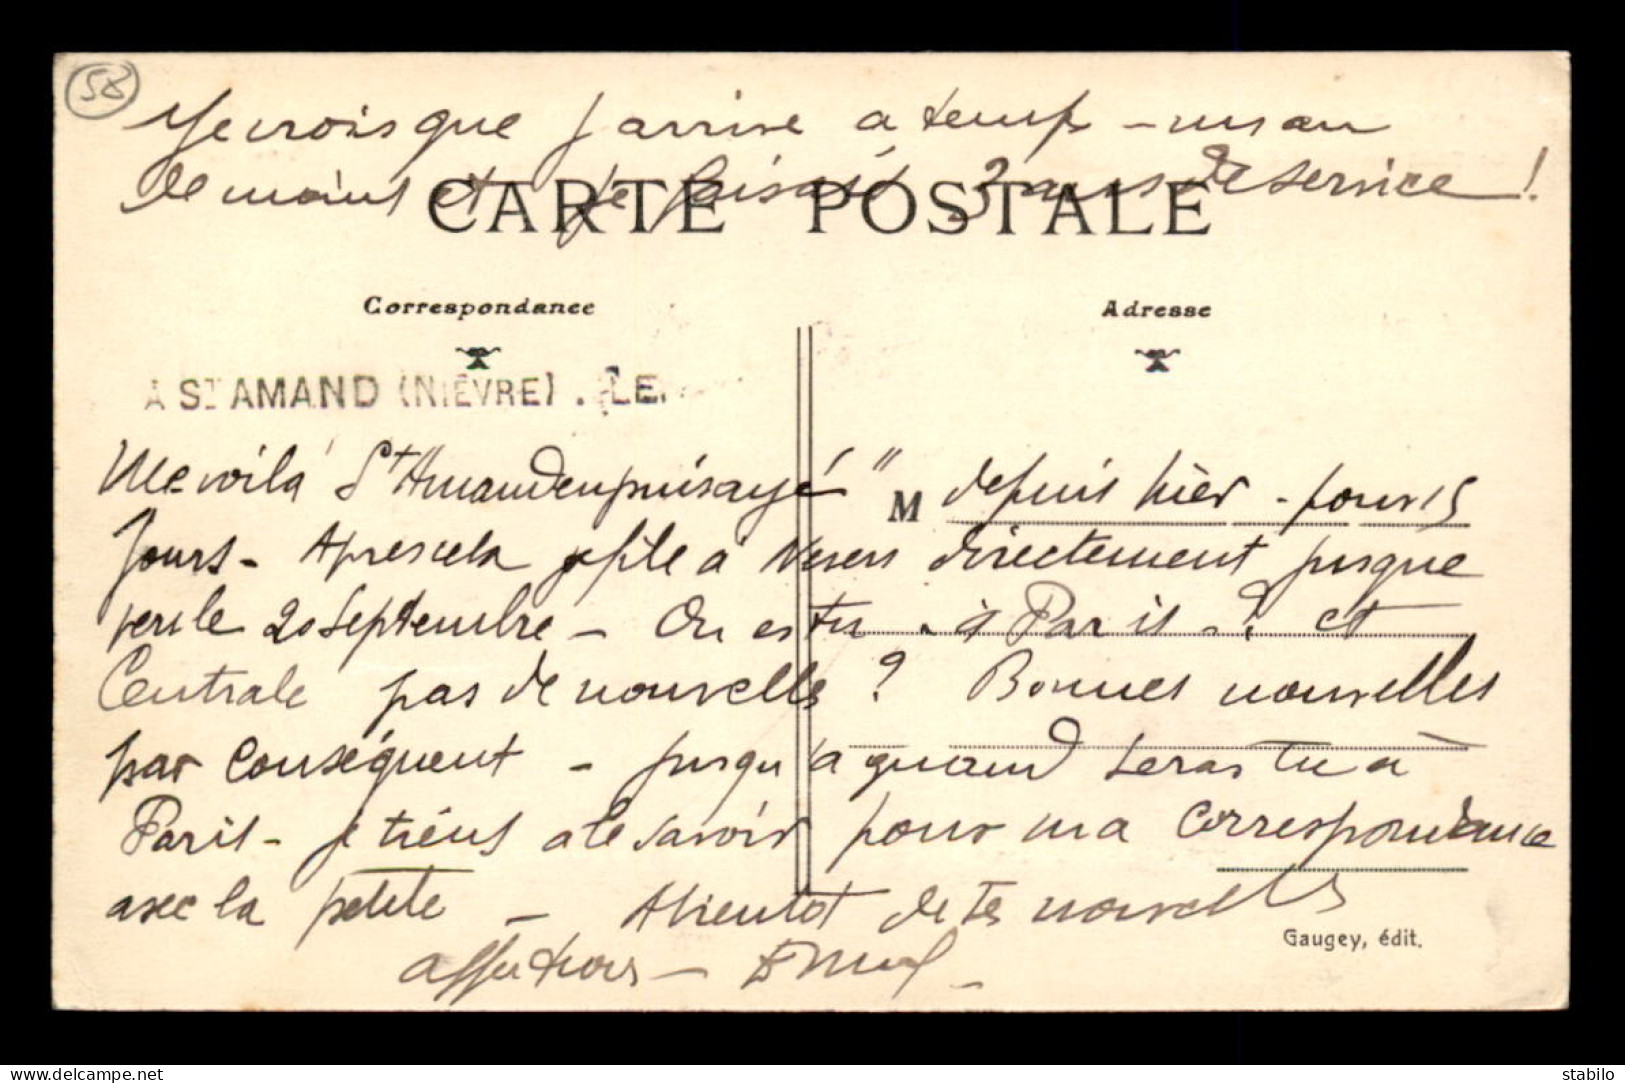 58
Je crois que j'arrive a temps - un an
de moins et je faisais 3 ans de service !
CARTE POSTALE
Correspondance
Adresse
A ST AMAND (NIÈVRE) . LE.
Me voilà St Amand en puisaye "
M depuis hièr - pour 15
Jours - Après cela je file à Nevers directement jusque
vers le 20 Septembre - On es tu à Paris - ? et
Centrale pas de nouvelles ? Bonnes nouvelles
par conséquent - jusqu'a quand seras tu à
Paris - je tiens a le savoir pour ma correspondance
avec la petite - A bientot de tes nouvelles
Gaugey, édit.
delcampe.net
stabilo